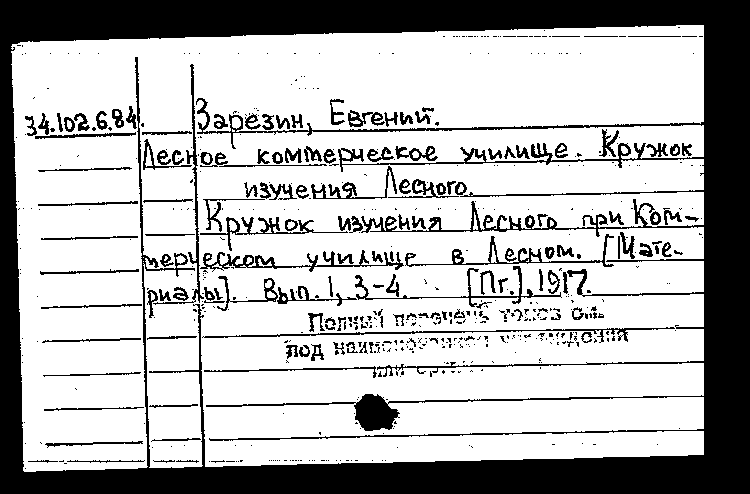 34.102.6.84. Зарезин, Евгений.
Лесное коммерческое училище. Кружок
изучения Лесного.
Кружок изучения Лесного при Ком-
мерческом училище в Лесном. [Мате-
риалы]. Вып. 1, 3-4. [Пг.], 1917.
Полный перечень томов см.
под наименованием учреждения
или